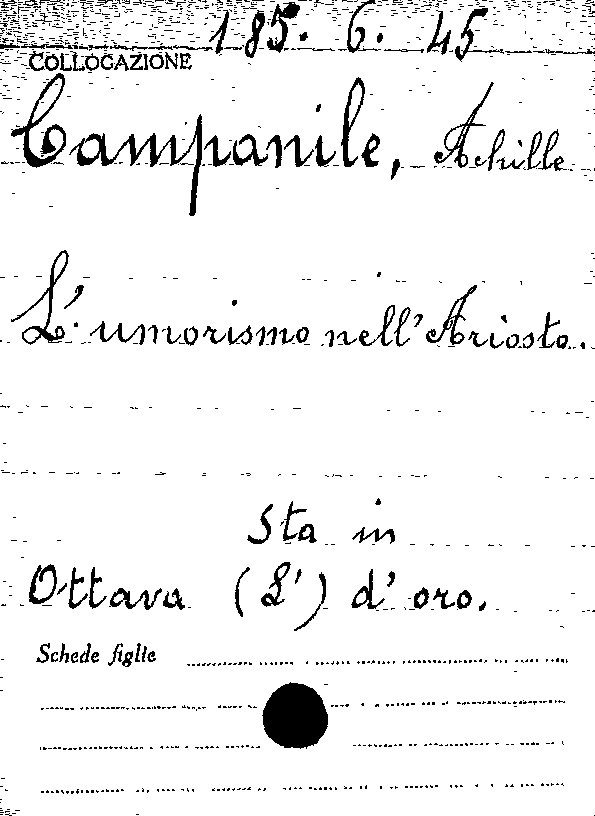 185. 6. 45
COLLOCAZIONE
Campanile, Achille
L'umorismo nell'Ariosto.
Sta in
Ottava (L') d'oro.
Schede figlie